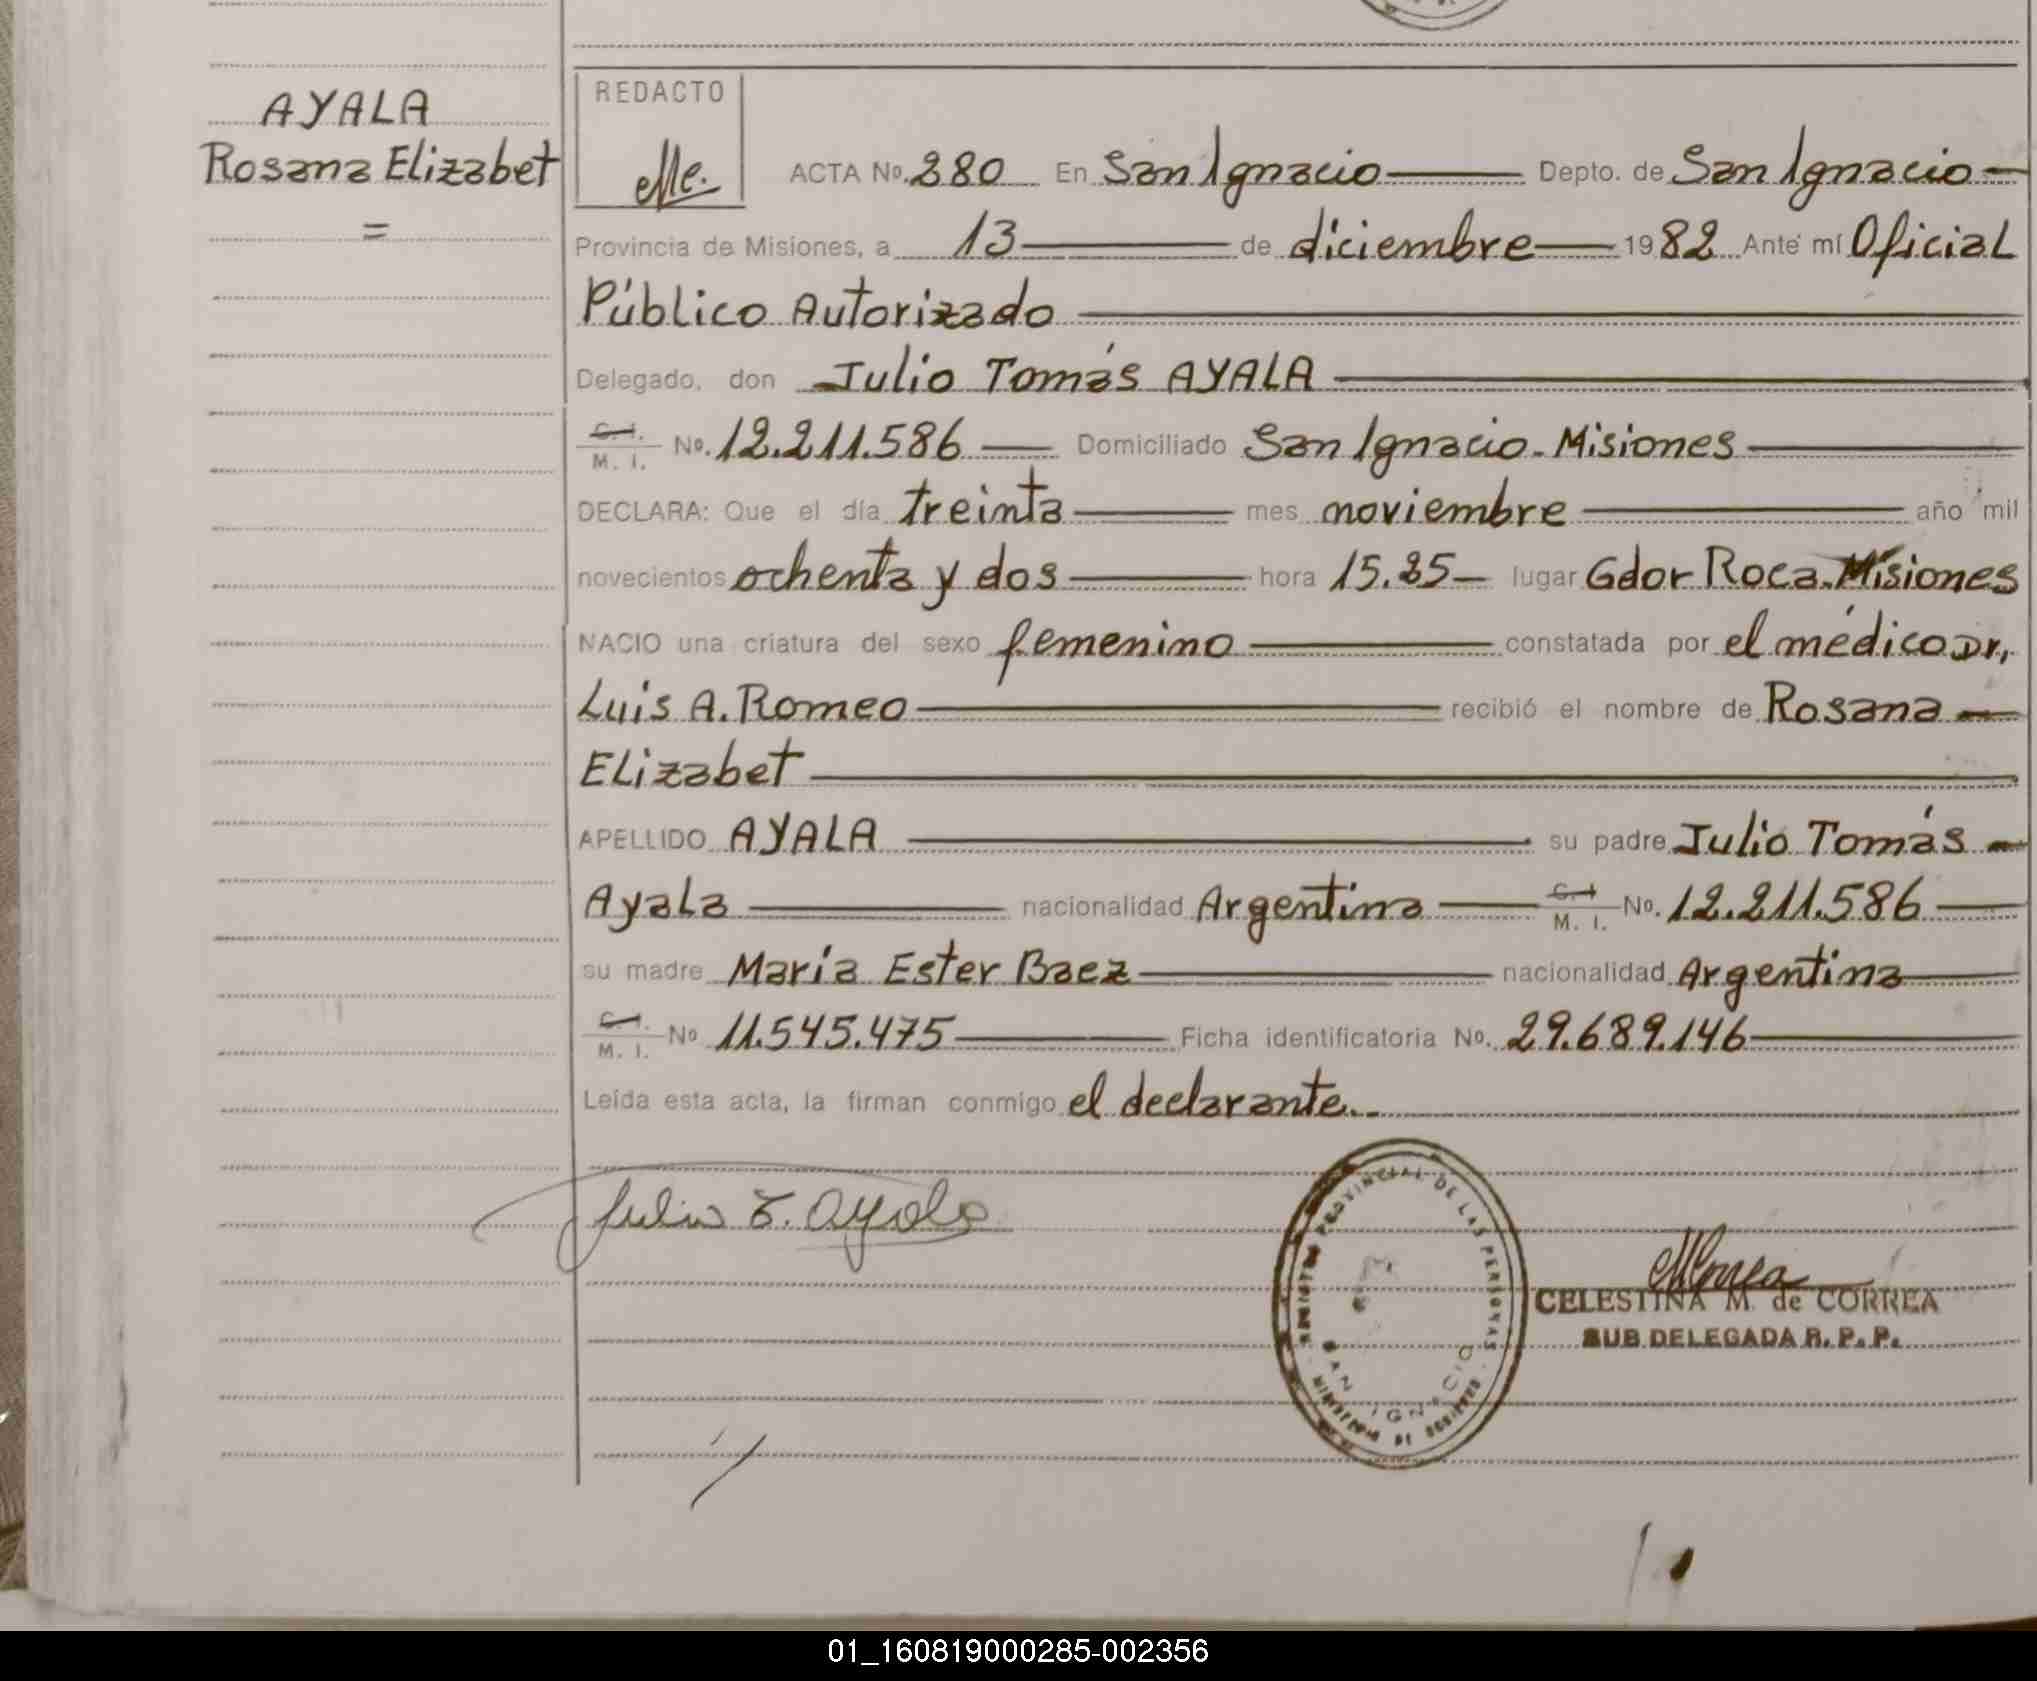 AYALA
Rosana Elizabet
=
REDACTO
ACTA No. 280 En San Ignacio Depto. de San Ignacio
Provincia de Misiones, a 13 de diciembre 1982 Ante mí Oficial
Público Autorizado
Delegado, don Julio Tomás AYALA
C. I. M. I. No. 12.211.586 Domiciliado San Ignacio - Misiones
DECLARA: Que el día treinta mes noviembre año mil
novecientos ochenta y dos hora 15.25 lugar Gdor Roca. Misiones
NACIO una criatura del sexo femenino constatada por el médico Dr,
Luis A. Romeo recibió el nombre de Rosana
Elizabet
APELLIDO AYALA su padre Julio Tomás
Ayala nacionalidad Argentina C. I. M. I. No. 12.211.586
su madre María Ester Baez nacionalidad Argentina
C. I. M. I. No 11.545.475 Ficha identificatoria No. 29.689.146
Leída esta acta, la firman conmigo el declarante.
Julio T. Ayala
PROVINCIAL DE LAS PERSONAS
SAN IGNACIO
CELESTINA M. de CORREA
SUB DELEGADA R. P. P.
01_160819000285-002356